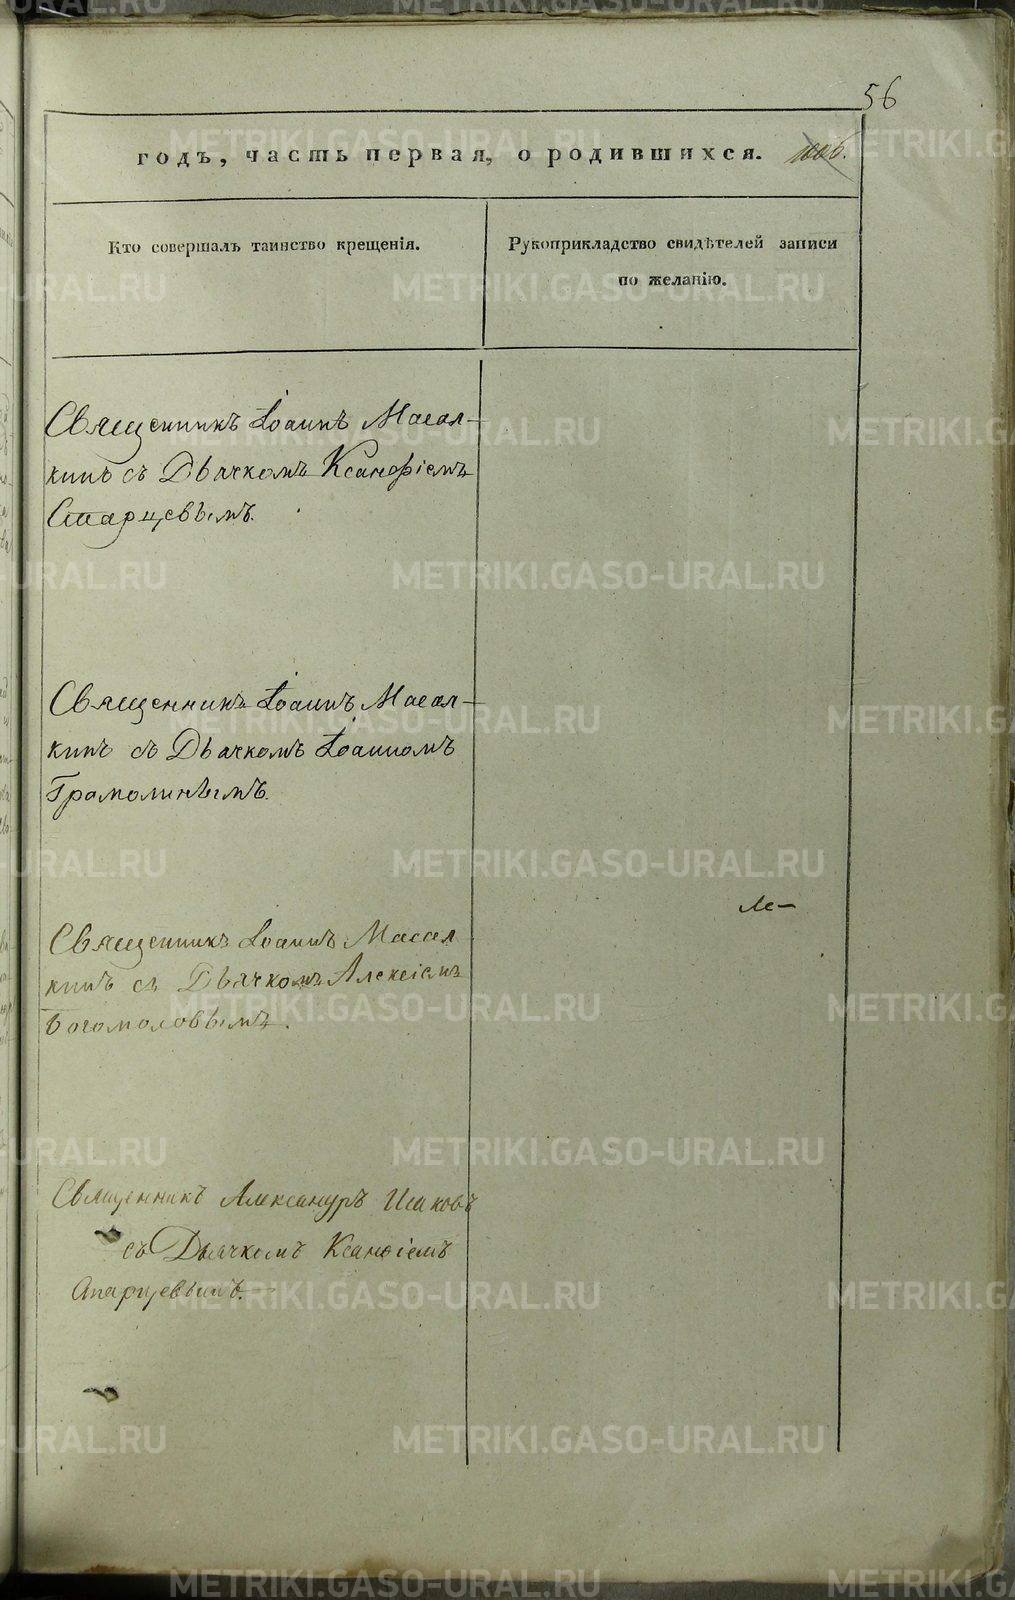 56
годъ, часть первая, о родившихся.
Кто совершалъ таинство крещенія.
Рукоприкладство свидѣтелей записи
по желанію.
Священникъ Іоаннъ Масал-
кинъ съ Дьячкомъ Ксанфіемъ
Старцевымъ.
Священникъ Іоаннъ Масал-
кинъ съ Дьячкомъ Іоанномъ
Священникъ Іоаннъ Масал
кинъ съ Дьячкомъ Алексіемъ
Богомоловымъ.
Священникъ Александръ Исаковъ
съ Дьячкомъ Ксанфіемъ
Старцевымъ.
METRIKI.GASO-URAL.RU